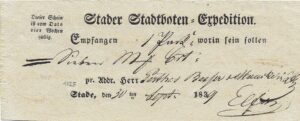 Dieser Schein
ist vom Dato
vier Wochen
gültig.
Stader Stadtboten-Expedition.
Empfangen 1 Pack: worin sein sollen
Sieben Mk Crt:
pr. Addr. Herr
Stade, den 30 ten Sept. 1839